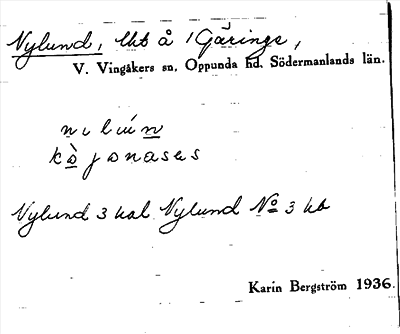 Nylund, lht å 1 Gäringe,
V. Vingåkers sn, Oppunda hd, Södermanlands län.
kò jonases
Nylund 3 kal Nylund No 3 kb
Karin Bergström 1936.